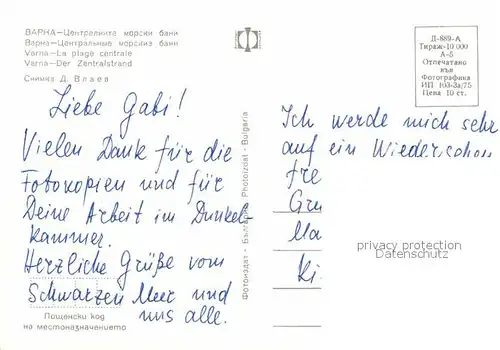 ВАРНА—Централните морски бани
Варна—Центральные морскиз бани
Varna—La plage centrale
Varna—Der Zentralstrand
Снимка Д. Влаев
Liebe Gabi!
Vielen Dank für die
Fotokopien und für
Deine Arbeit im Dunkel-
kammer.
Herzliche Grüße vom
Schwarzen Meer und
uns alle.
Пощенски код
на местоназначението
Фотоиздат - Български Photoizdat - Bulgaria
Д-889-А
Тираж-10 000
А-5
Отпечатано
във
Фотографика
ИП 103-За/75
Цена 10 ст.
Ich werde mich sehr
auf ein Wiedersehen
fre
Gru
Ma
Ki
privacy protection
Datenschutz